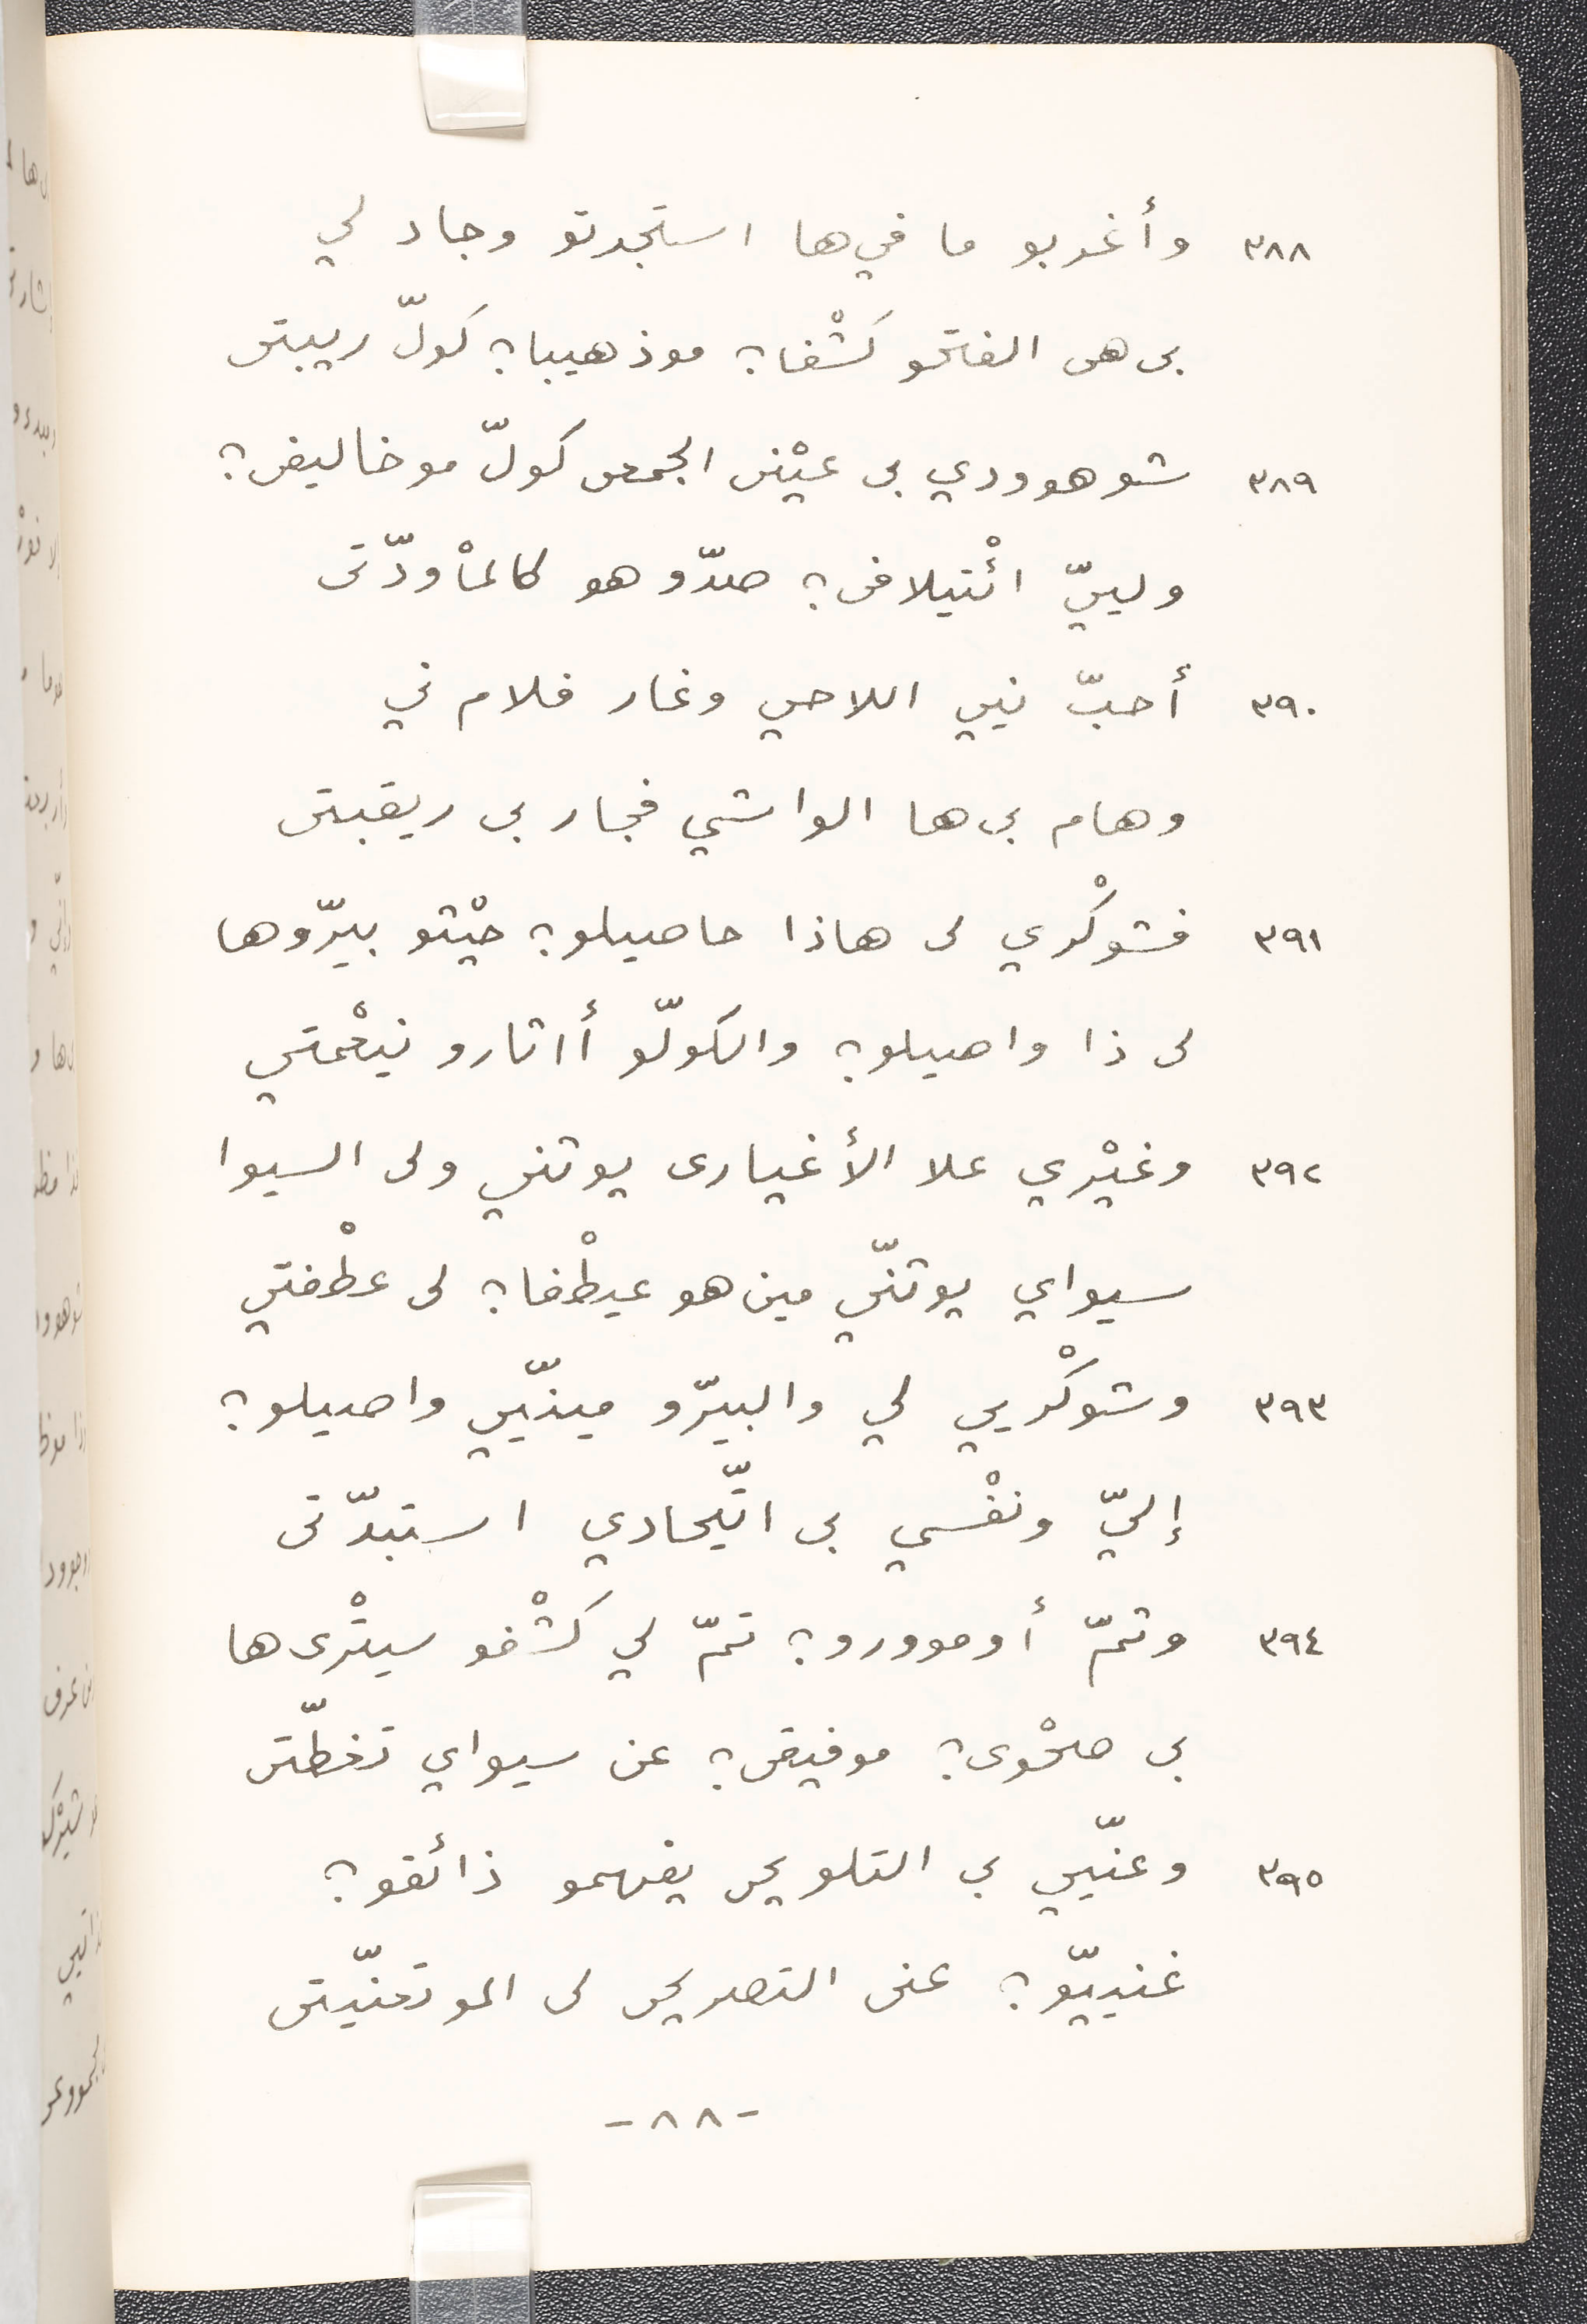 ٣٨٨ وأغربو ما في ها استجدتو وجاد لي
بى هى الفتحو كشْفا؟ موذهيبا؟ كولّ ريبتى
٣٨٩ شوهوودي بى عيْنى الجمعى كولّ موخاليفى؟
وليىّ ائْتيلافى؟ صدّوهو كالمأودّتى
٣٩٠ أحبّ نيي اللاحي وغار فلام ني
وهام بى ها الواشي فجار بى ريقبتى
٣٩١ فشوكْري لى هاذا حاصيلو؟ حيْثو بيرّوها
لى ذا واصيلو؟ والكولّو أاثارو نيعْمتي
٣٩٢ وغيْري علا الأغيارى يوثني ولى السيوا
سيواي يوثنّي مين هو عيطْفا؟ لى عطْفتي
٣٩٣ وشوكْريي لي والبيرّو مينّيي واصيلو؟
إليّ ونفْسي بى اتّيحادي استبدّتى
٣٩٤ وثمّ أوموورو؟ تمّ لي كشْفو سيتْرى ها
بي صحْوى؟ موفيقى؟ عن سيواي تغطّتى
٣٩٥ وعنّيي بي التلويحى يفهمو ذائقو؟
غنييّو؟ عنى التصريحى لى الموتعنّيتى
-٨٨-